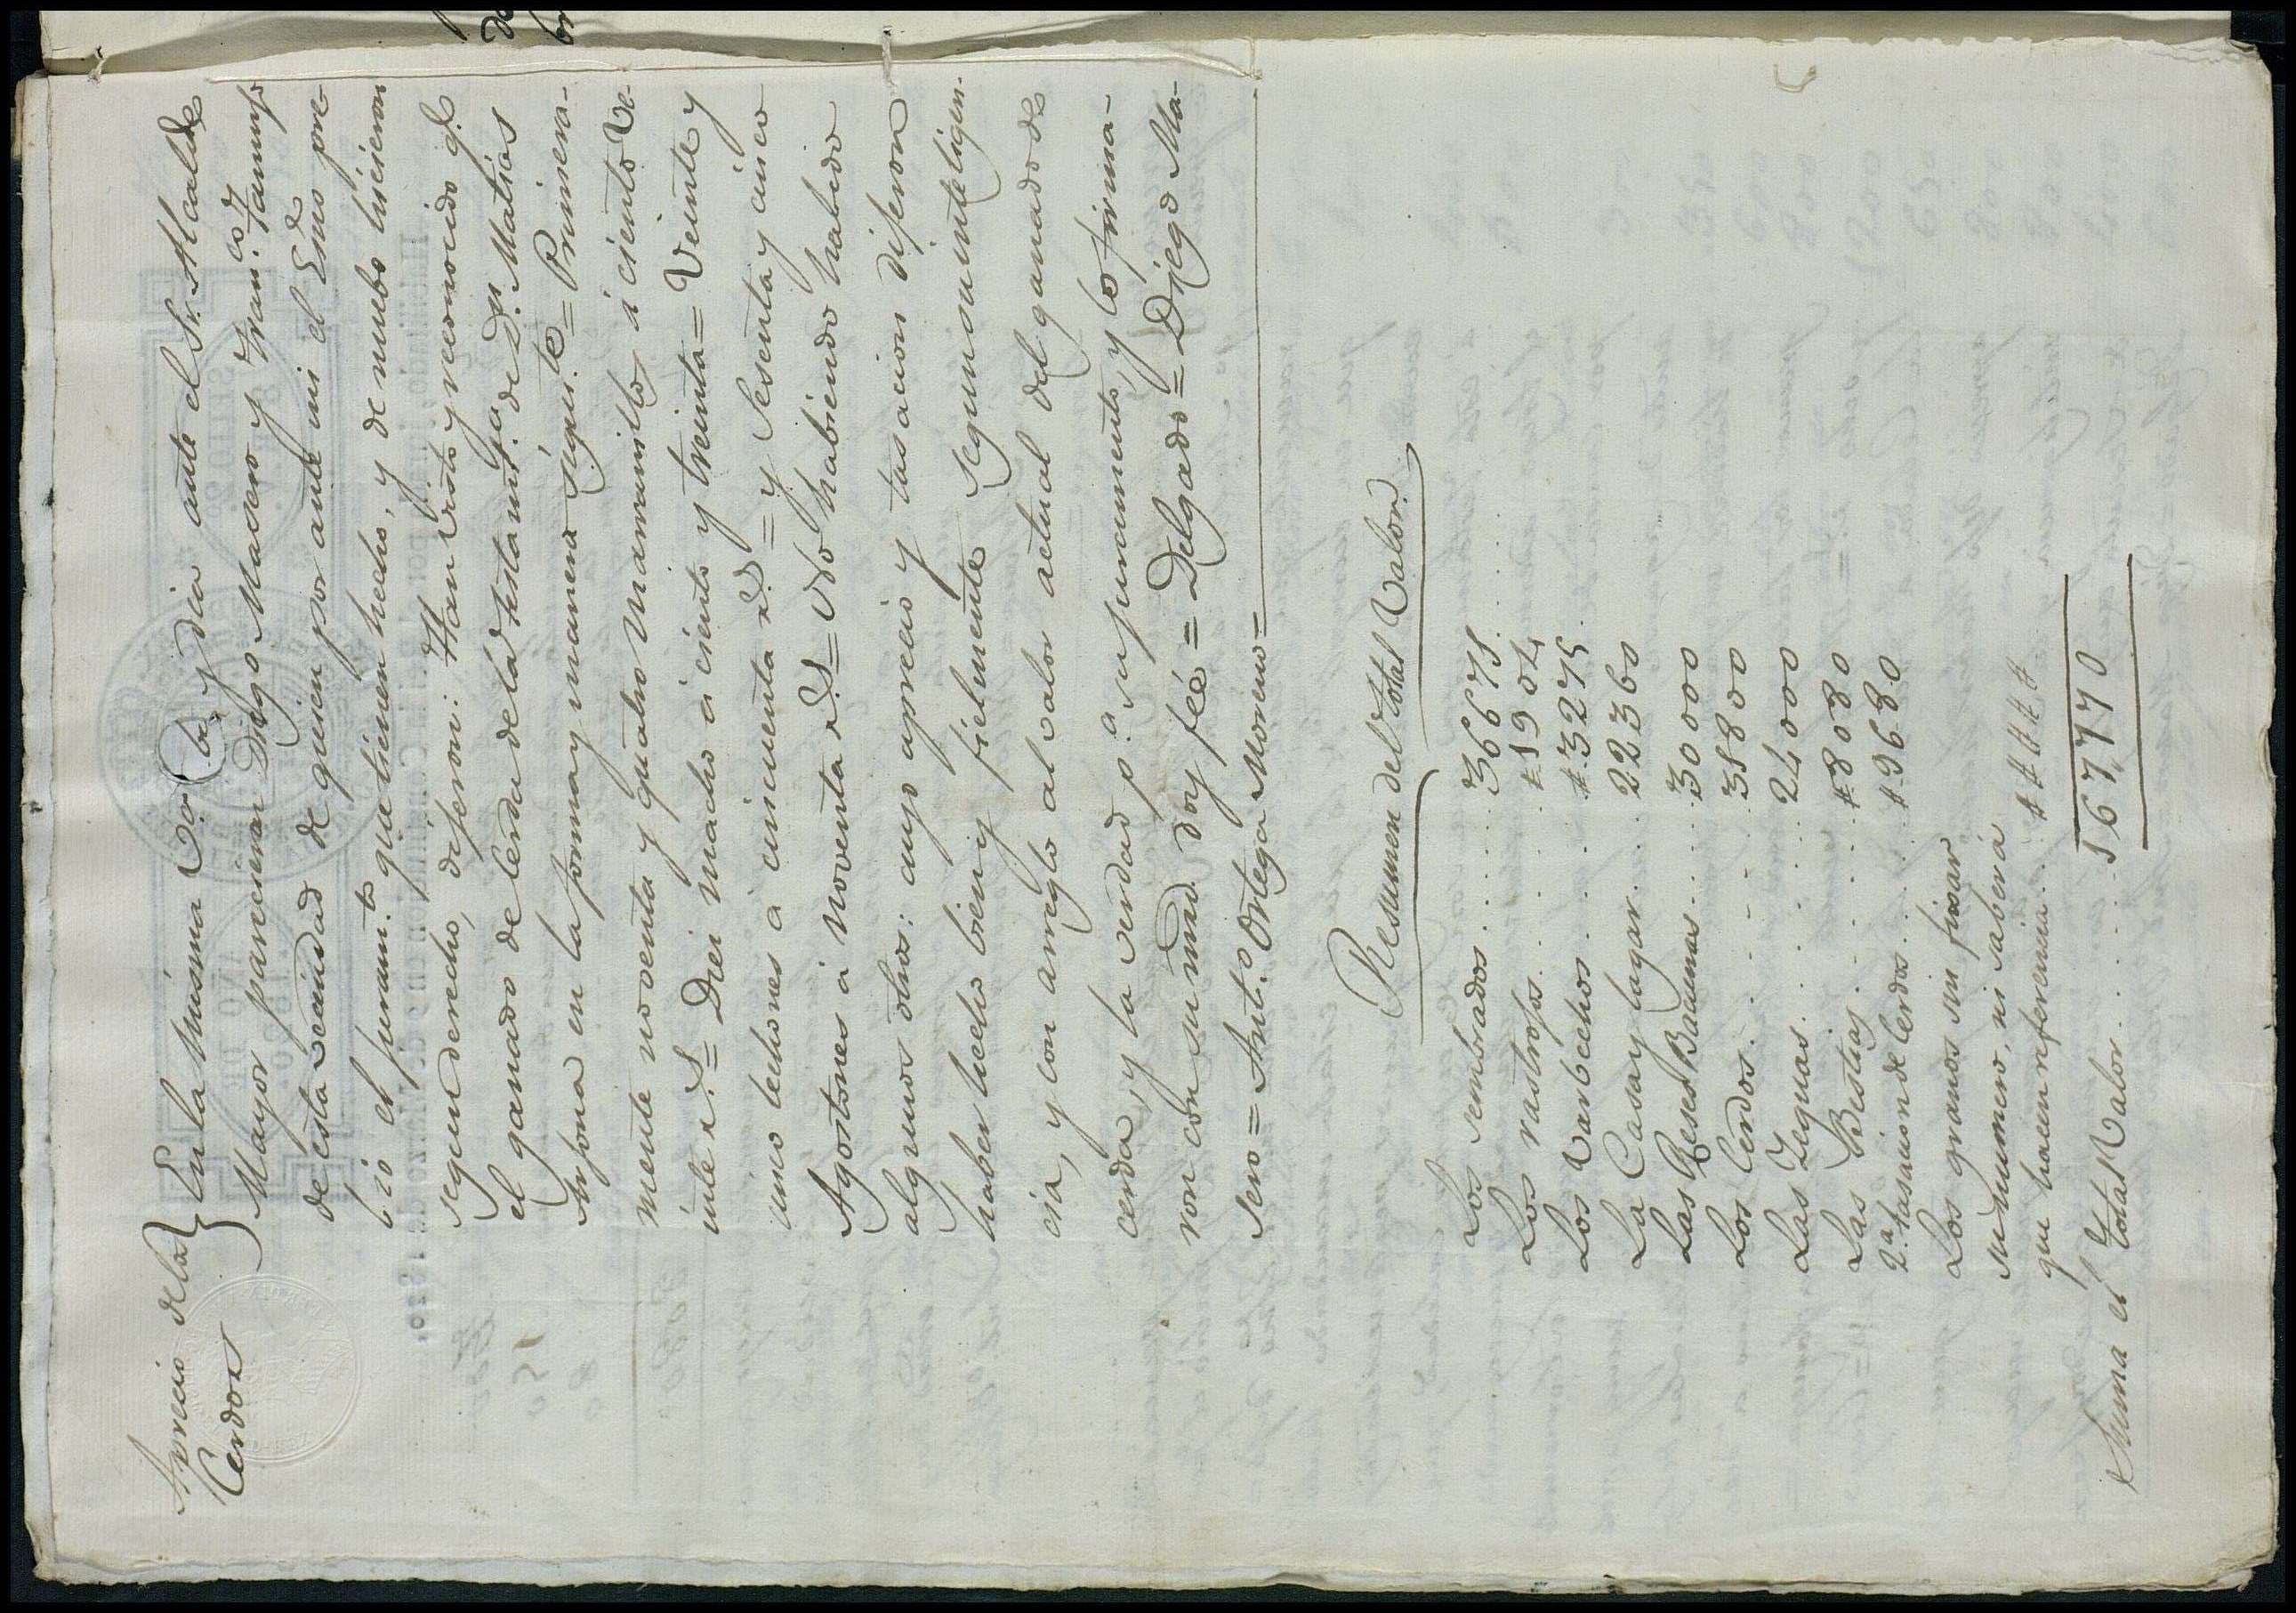 Aprecio de los
Cerdos
En la misma Va. y dia ante el Sr. Alcalde
Mayor parecieron Diego Masero y Fran.co
de esta vecindad de quien por ante mi el Esno
el juram.to que tienen hecho, y de nuebo hicieron
segun derecho, dijeron: Han visto y reconocido q.e
el ganado de Cerda de la testam.a de Dn. Matias
Arjona en la forma y manera siguí.te = Primera-
mente noventa y quatro Marranillos á ciento Ve-
inte r.s = Diez Macho á ciento y treinta = Veinte y
cinco lechones á cincuenta r.s = y Sesenta y cinco
Agostones á noventa r.s = No habiendo habido
algunos otros: cuyo aprecio y tasacion dijeron
haber hecho bien y fielmente segun su inteligen-
cia, y con arreglo al valor actual del ganado de
cerda, y la verdad p.a su juramento, y lo firma-
ron con su mrd. doy feé = Delgado = Diego Ma-
sero = Ant.o Ortega Moreno =
Resumen del total Valor.
Los sembrados . . . . 36671
Los rastrojos . . . . #1904
Los Varbechos . . . #3275
La Casa y lagar . . . 22360
Las Reses Bacunas . . . 30000
Los Cerdos . . . . 31800
Las Yeguas . . . . 24000
Las Bestias . . . . #8080
2.a tasacion de Cerdos . . . #9680
Los granos sin fixar
su numero, ni saber á
que hacen referencia . . . ####
Suma el total Valor . . . . 167,770